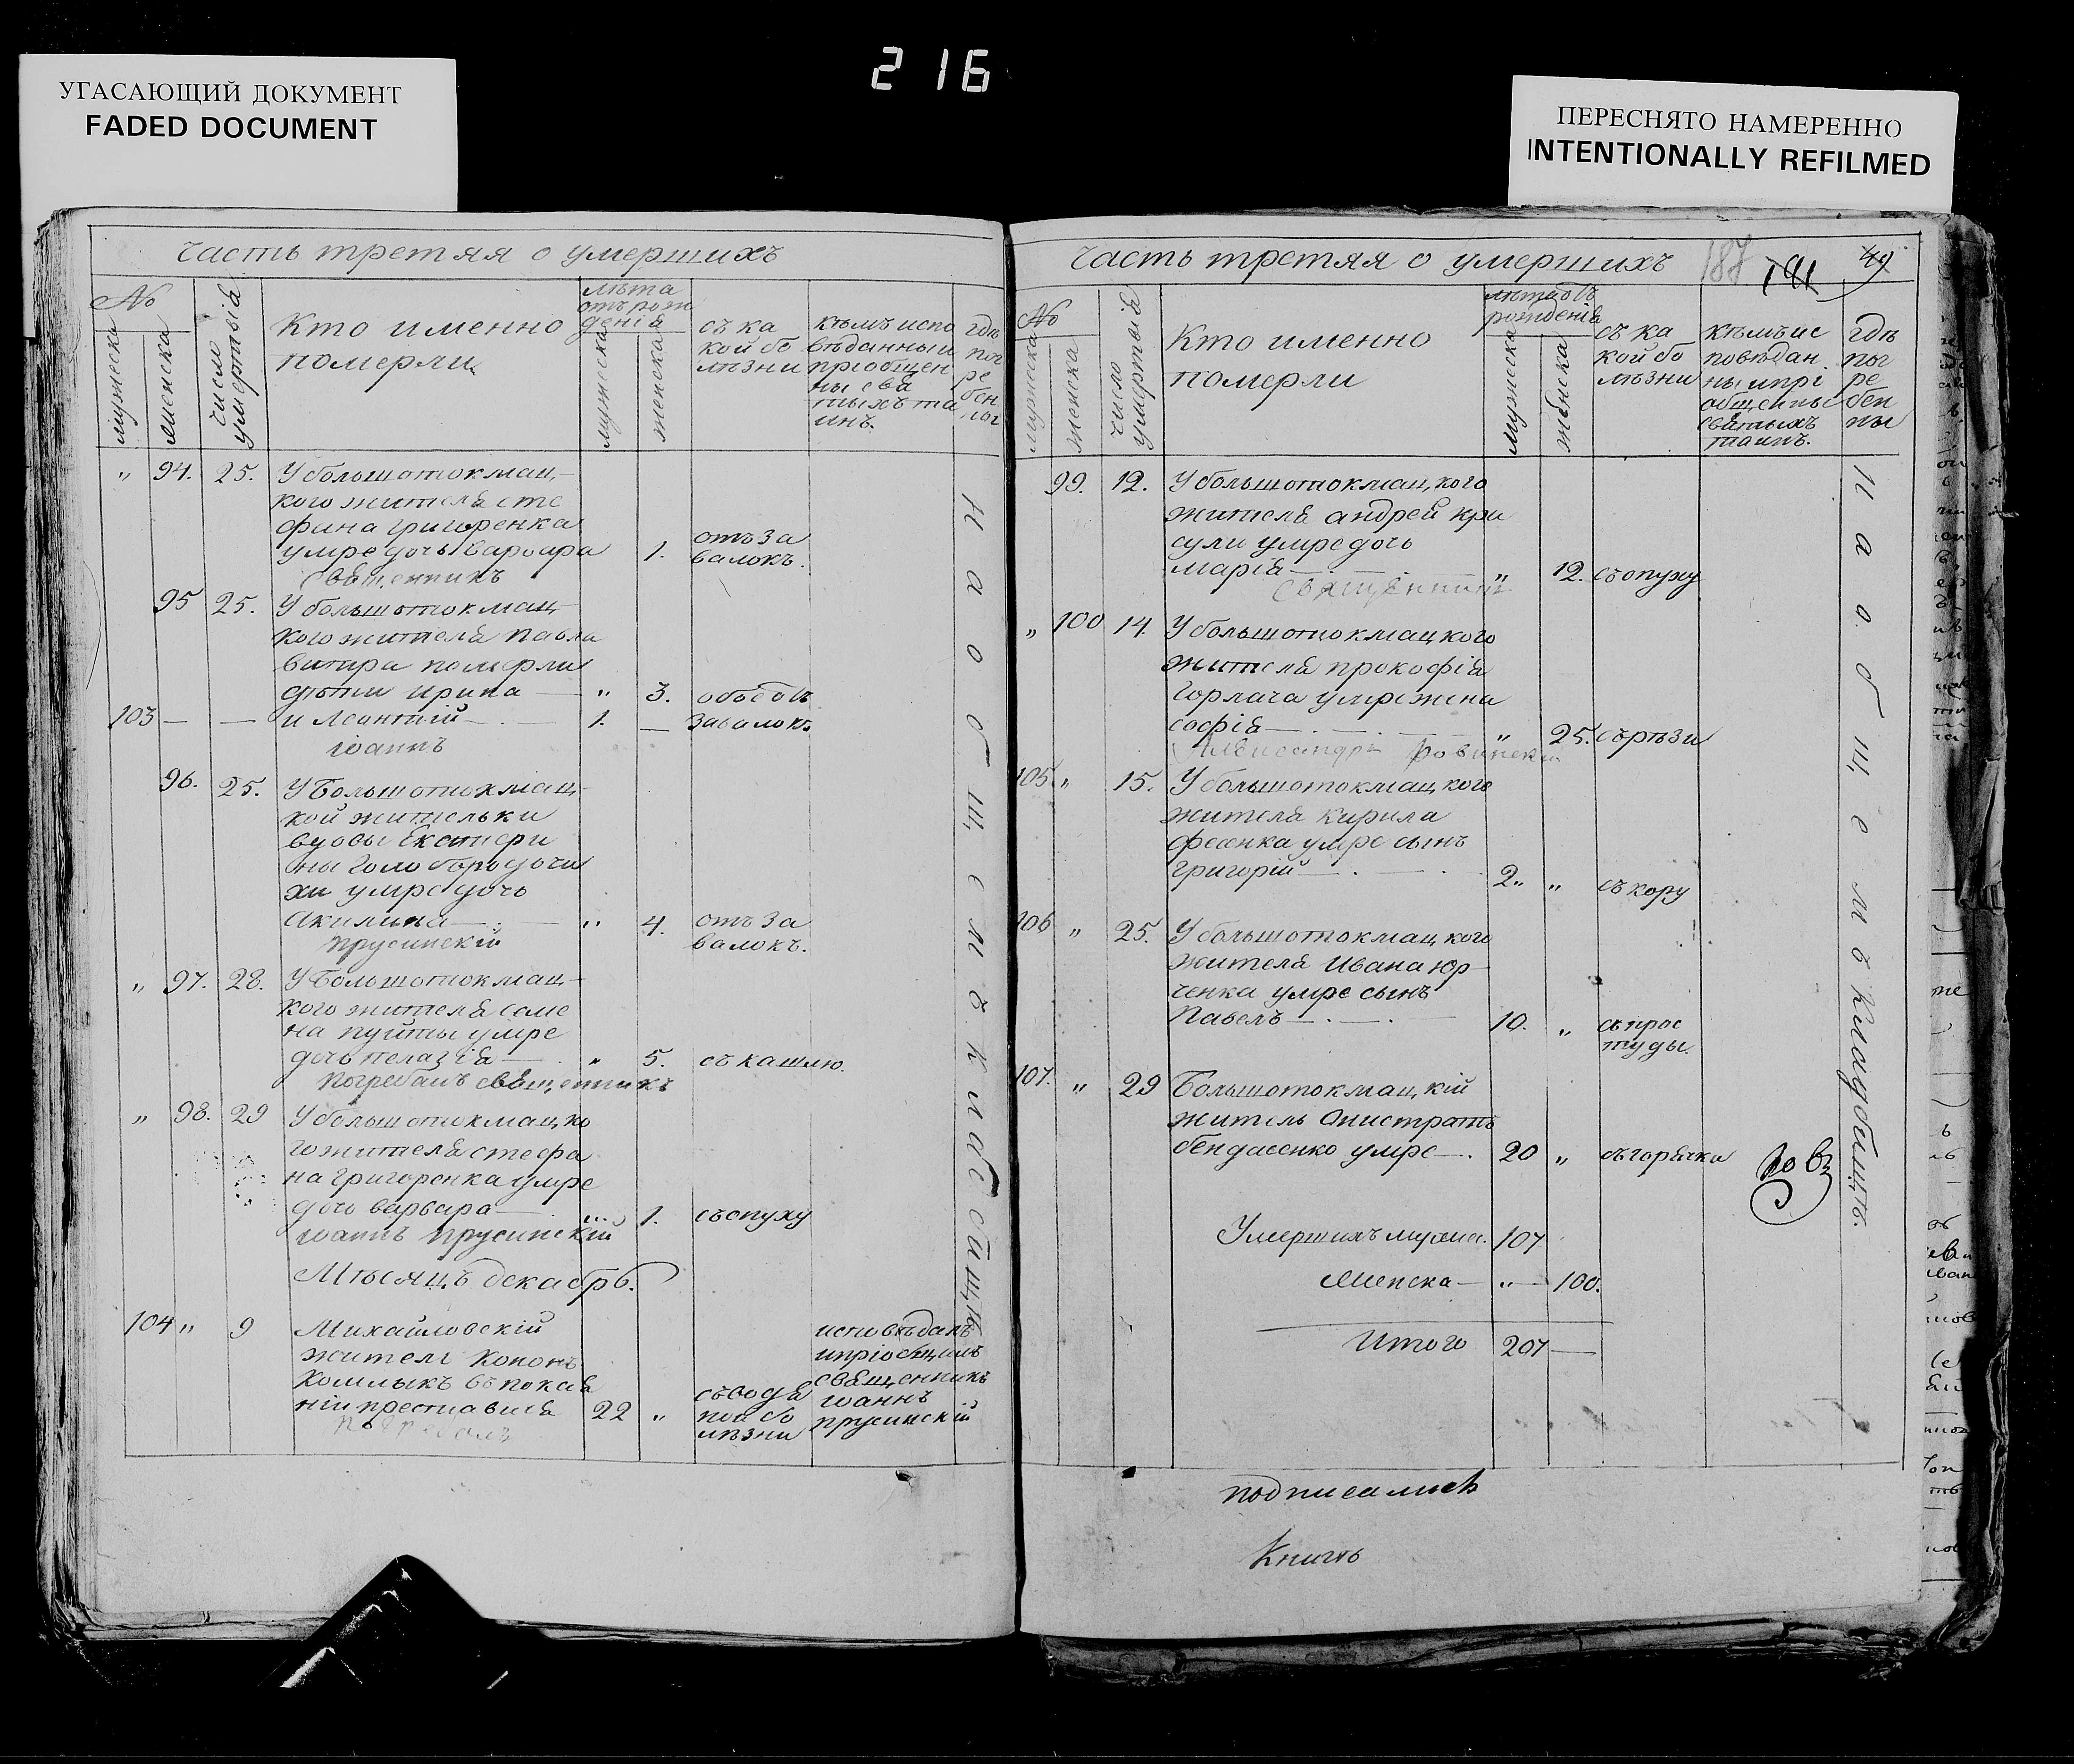 216
УГАСАЮЩИЙ ДОКУМЕНТ
FADED DOCUMENT
ПЕРЕСНЯТО НАМЕРЕННО
INTENTIONALLY REFILMED
часть третяя о умершихъ
№
мужеска
женска
число умертвія
Кто именно
померли
лѣта
отъ рож
денія
мужеска
женска
съ ка
кой бо
лѣзни
кѣмъ испо
вѣданны и
пріобщен
ны свя
тыхъ та
инъ.
гдѣ
пог
ре
бен
ны
" 94. 25. У большотокмац-
кого жителя сте
фана григоренка
умре дочь варвара 1. отъ за
валокъ.
священникъ
95 25. У большотокмац-
кого жителя павла
витра померли
дѣти ирина — " 3. обоє отъ
103 — — и леонтий — 1. — завалокъ
іоаннъ
96. 25. У Большотокмац-
кой жительки
вдовы Екатери
ны голобородочи
хи умре дочь
акилина — " 4. отъ за
валокъ.
прусинскій
" 97. 28. У Большотокмац-
кого жителя семе
на пуйты умре
дочь пелагія — " 5. съ кашлю.
погребалъ священникъ
" 98. 29 У большотокмацко
го жителя стефа
на григоренка умре
дочь варвара — " 1. съ опуху
іоаннъ прусинскій
Мѣсяцъ декабрь.
104 " 9 Михайловскій
житель Кононъ
хомлыкъ въ покая
ніи преставися 22 " съ водя
ной бо
лѣзни
исповѣдалъ
и пріобщилъ
священникъ
іоаннъ
прусинскій
погребалъ
На общемъ кладбищѣ
часть третяя о умершихъ
187 191 49
№
мужеска
женска
число умертвія
Кто именно
померли
лѣта отъ
рожденія
мужеска
женска
съ ка
кой бо
лѣзни
кѣмъ ис
повѣдан
ны и прі
общены
святыхъ
таинъ.
гдѣ
пог
ре
бен
ны
99. 12. У большотокмацкого
жителя андрей кри
сули умре дочь
марія — " 12. съ опуху
священникъ
" 100 14. У большотокмацкого
жителя прокофія
горлача умре жена
софія — " 25. съ рѣзи
Александръ Ровинскій
105. " 15. У большотокмацкого
жителя кирила
фесенка умре сынъ
григорій — 2 " " съ кору
106 " 25. У большотокмацкого
жителя Ивана юр
ченка умре сынъ
Павелъ — 10. " съ прос
туды.
107. " 29 Большотокмацкій
житель Онистратъ
бендасенко умре — 20 " съ горячки
На общемъ кладбищѣ.
Умершихъ мужеска. 107
женска — " — 100.
Итого 207 —
подписались
Книгъ